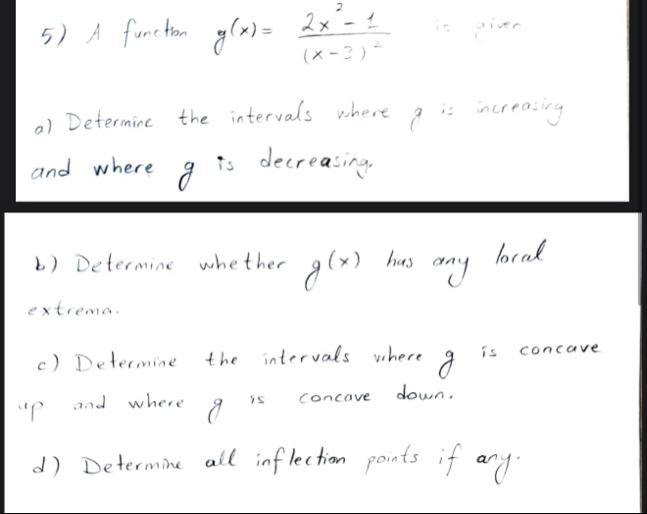 5) A function g(x) = 2x² - 1 / (x-3)² is given.
a) Determine the intervals where g is increasing
and where g is decreasing.
b) Determine whether g(x) has any local
extrema.
c) Determine the intervals where g is concave
up and where g is concave down.
d) Determine all inflection points if any.